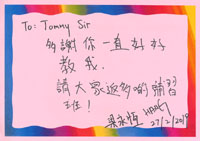 To: Tommy Sir
多謝你一直好好
教我.
請大家返多啲補習
班！
梁永恆
27/2/2019